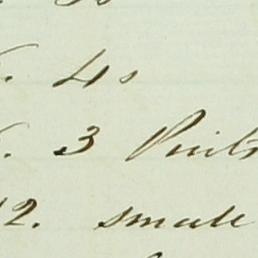 4s
3 Pints
12. small